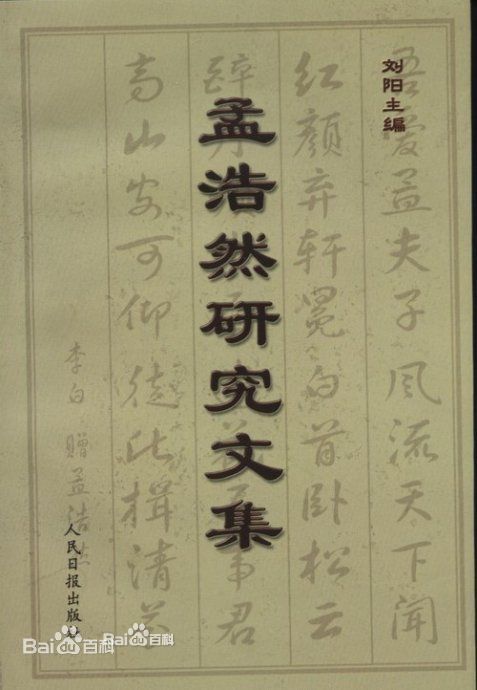 刘阳主编
吾爱孟夫子风流天下闻
红颜弃轩冕白首卧松云
孟浩然研究文集
醉 事君
高山安可仰徒此揖清芬
李白 赠孟浩然
人民日报出版社
Bai百科
Bai百科